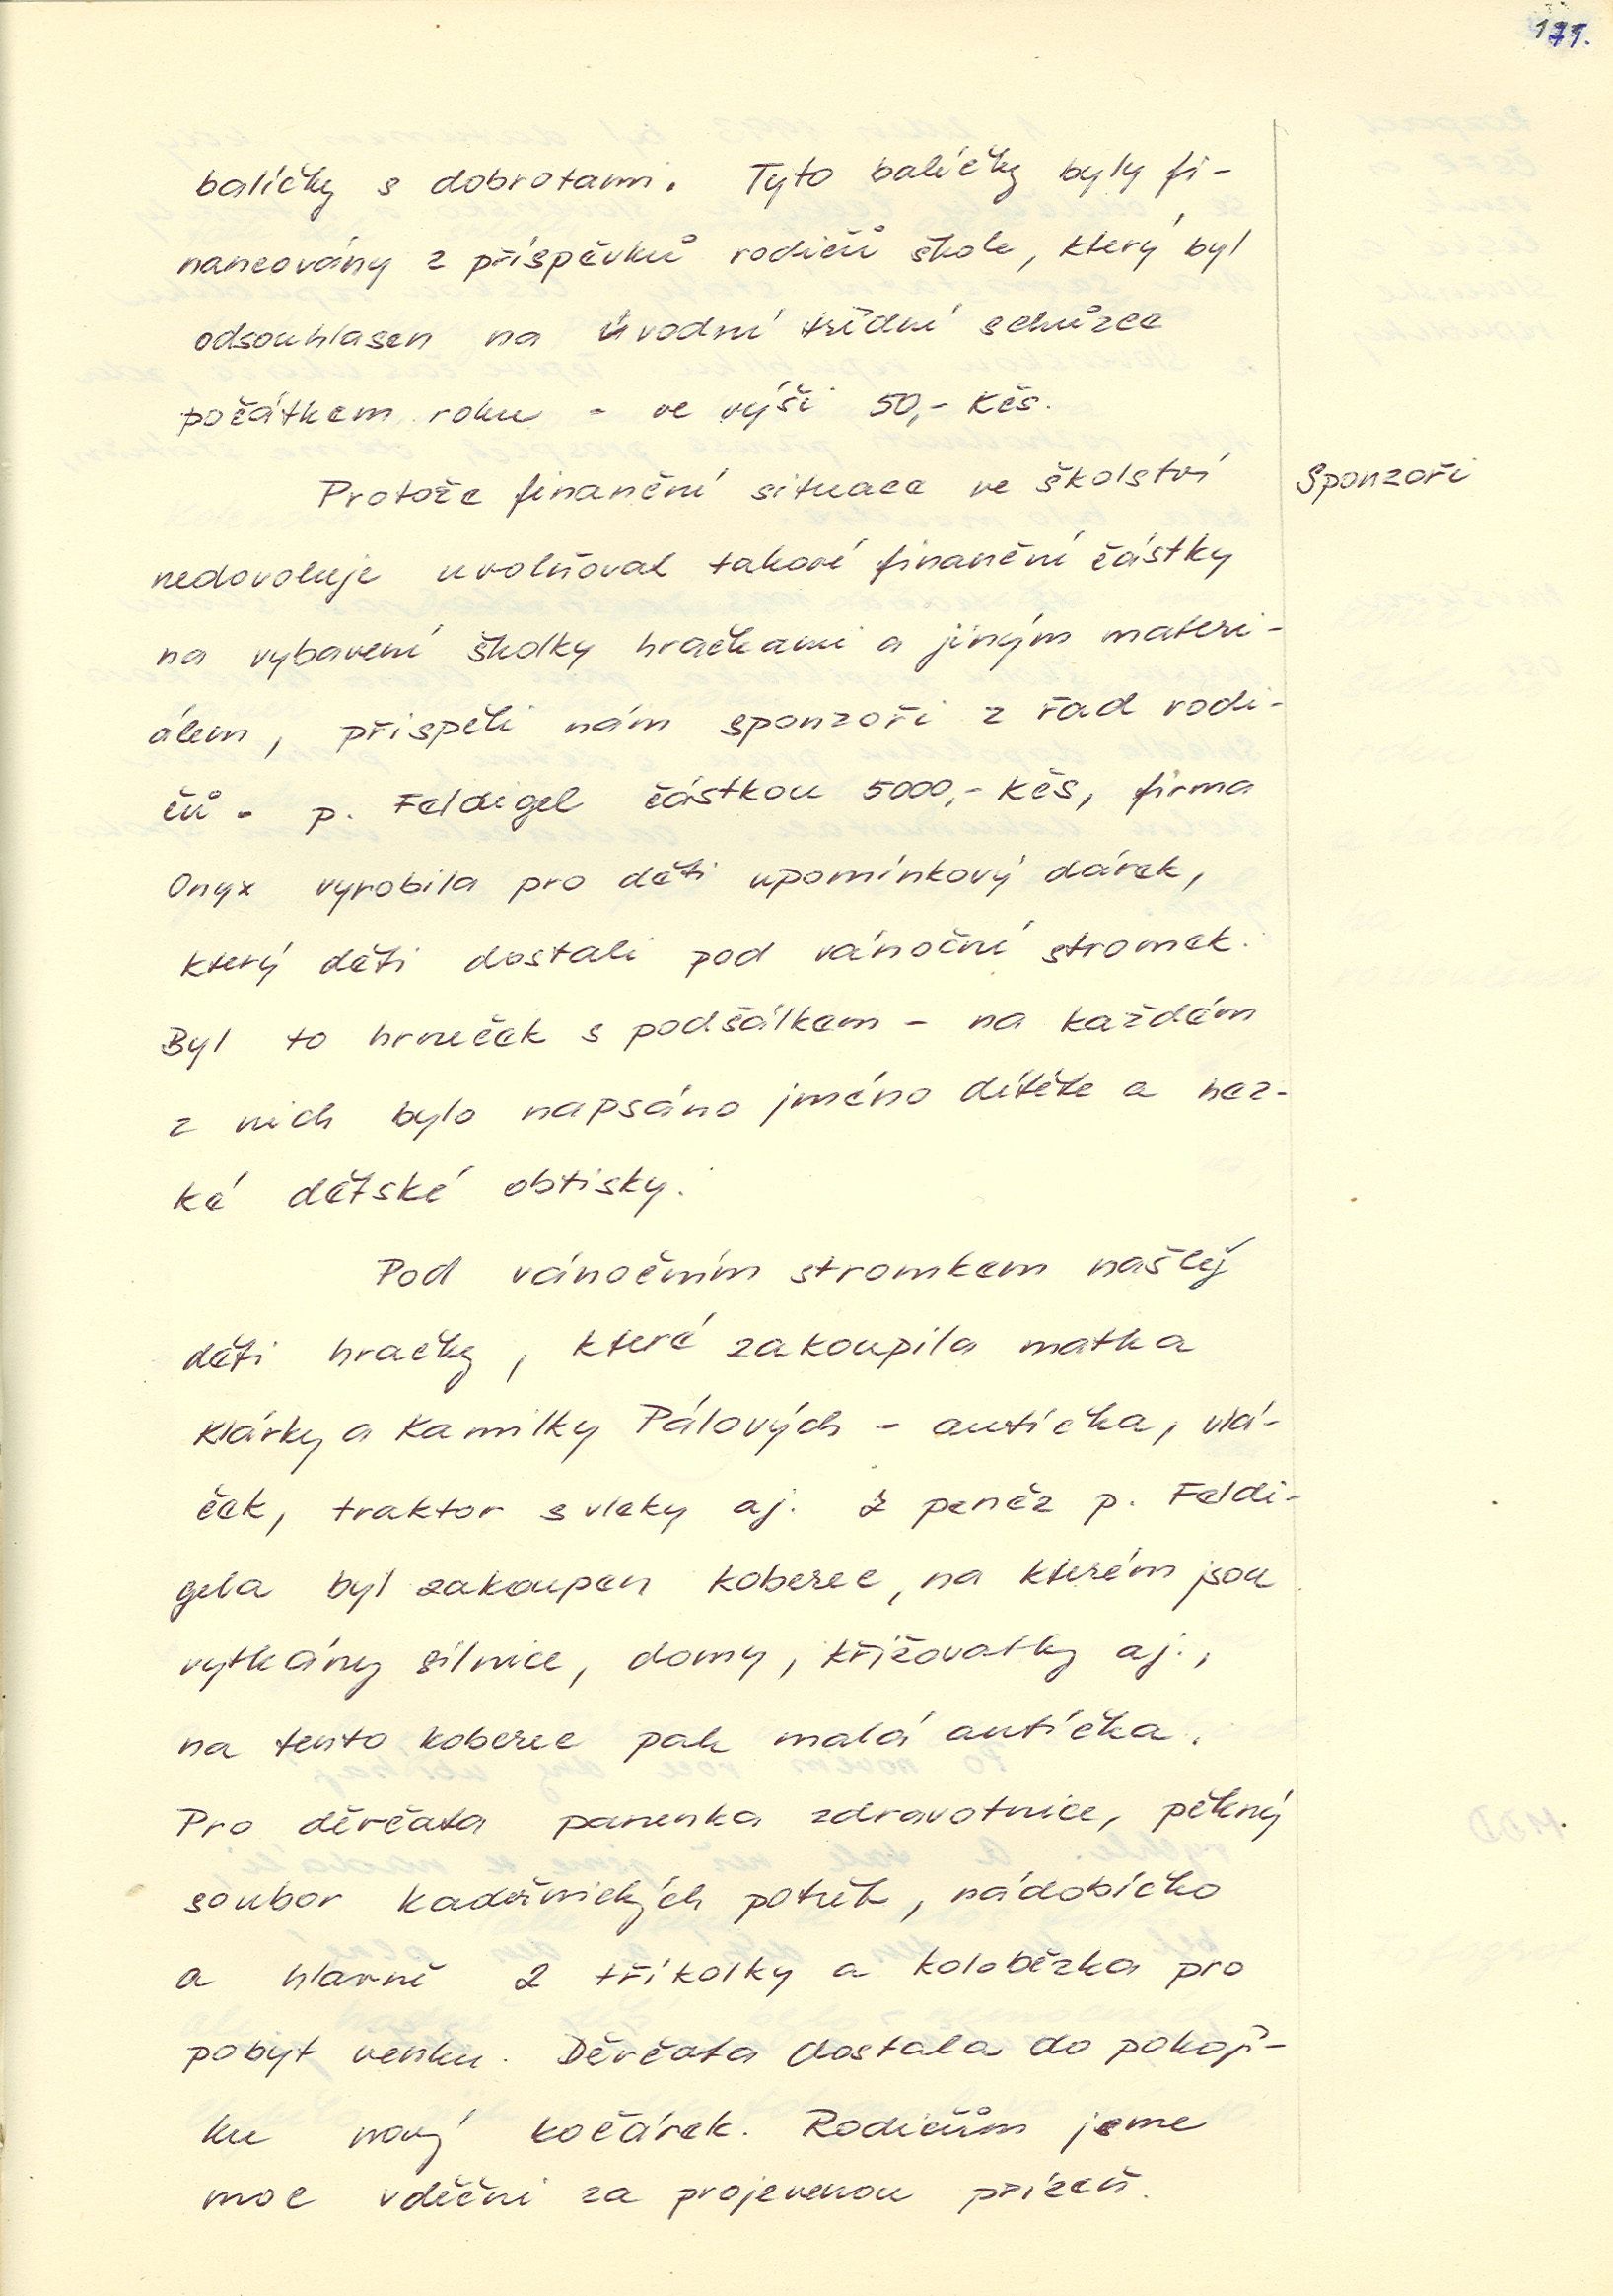 171.
balíčky s dobrotami. Tyto balíčky byly fi-
nancovány z příspěvků rodičů škole, který byl
odsouhlasen na úvodní třídní schůzce
počátkem roku - ve výši 50,- Kčs.
Sponzoři
Protože finanční situace ve školství
nedovoluje uvolňovat takové finanční částky
na vybavení školky hračkami a jiným materi-
álem, přispěli nám sponzoři z řad rodi-
čů - p. Feldigel částkou 5000,- Kčs, firma
Onyx vyrobila pro děti upomínkový dárek,
který děti dostali pod vánoční stromek.
Byl to hrneček s podšálkem - na každém
z nich bylo napsáno jméno dítěte a hez-
ké dětské obtisky.
Pod vánočním stromkem našly
děti hračky, které zakoupila matka
Klárky a Kamilky Pálových - autíčka, vlá-
ček, traktor s vleky aj. Z peněz p. Feldi-
gela byl zakoupen koberec, na kterém jsou
vytkány silnice, domy, křižovatky aj.,
na tento koberec pak malá autíčka.
Pro děvčata panenka zdravotnice, pěkný
soubor kadeřnických potřeb, nádobíčko
a hlavně 2 tříkolky a koloběžka pro
pobyt venku. Děvčata dostala do pokojí-
ku nový kočárek. Rodičům jsme
moc vděčni za projevenou přízeň.